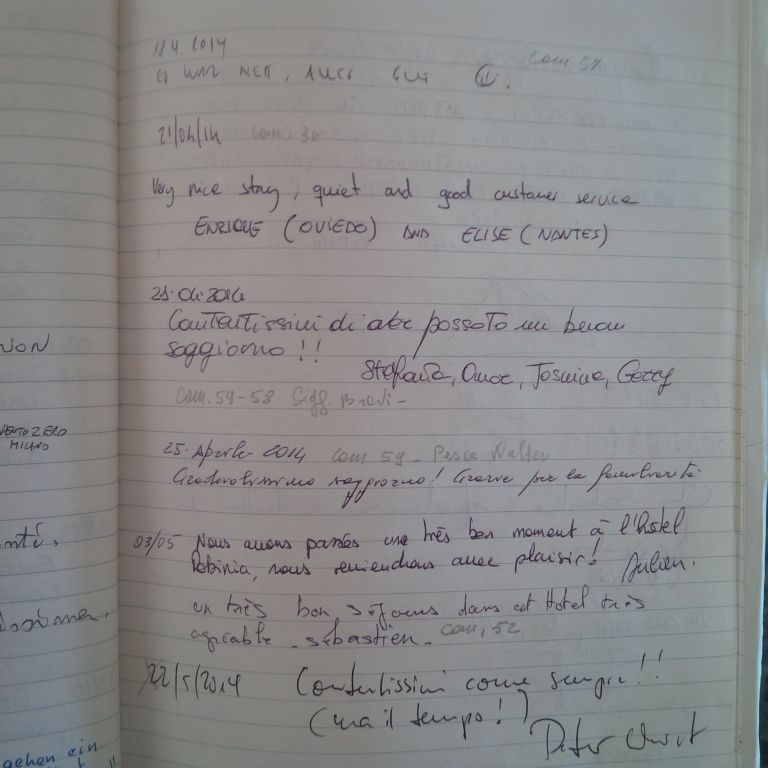 NON
VENTO ZERO
MICRO
nté.
gehen ein
11.4.2014
ES WAR NETT, ALLES GUT cam 57
21/04/14 cam. 36
Very nice stay, quiet and good customer service
ENRIQUE (OVIEDO) AND ELISE (NANTES)
21.04.2014
Contentissimi di aver passato un buon
soggiorno !!
Stefania, Omar, Jasmine, Gerry
Cam. 59-58 Sigg. Bravi-
25. Aprile 2014 Cam 59 - Pesce Walter
Gradevolissimo soggiorno! Grazie per la familiarità
03/05 Nous avons passés une très bon moment à l'hôtel
Robinia, nous reviendrons avec plaisir! Julien.
un très bon séjours dans cet Hotel très
agréable - Sébastien - cam, 52
22/5/2014 Contentissimi come sempre!!
(ma il tempo!)
Peter